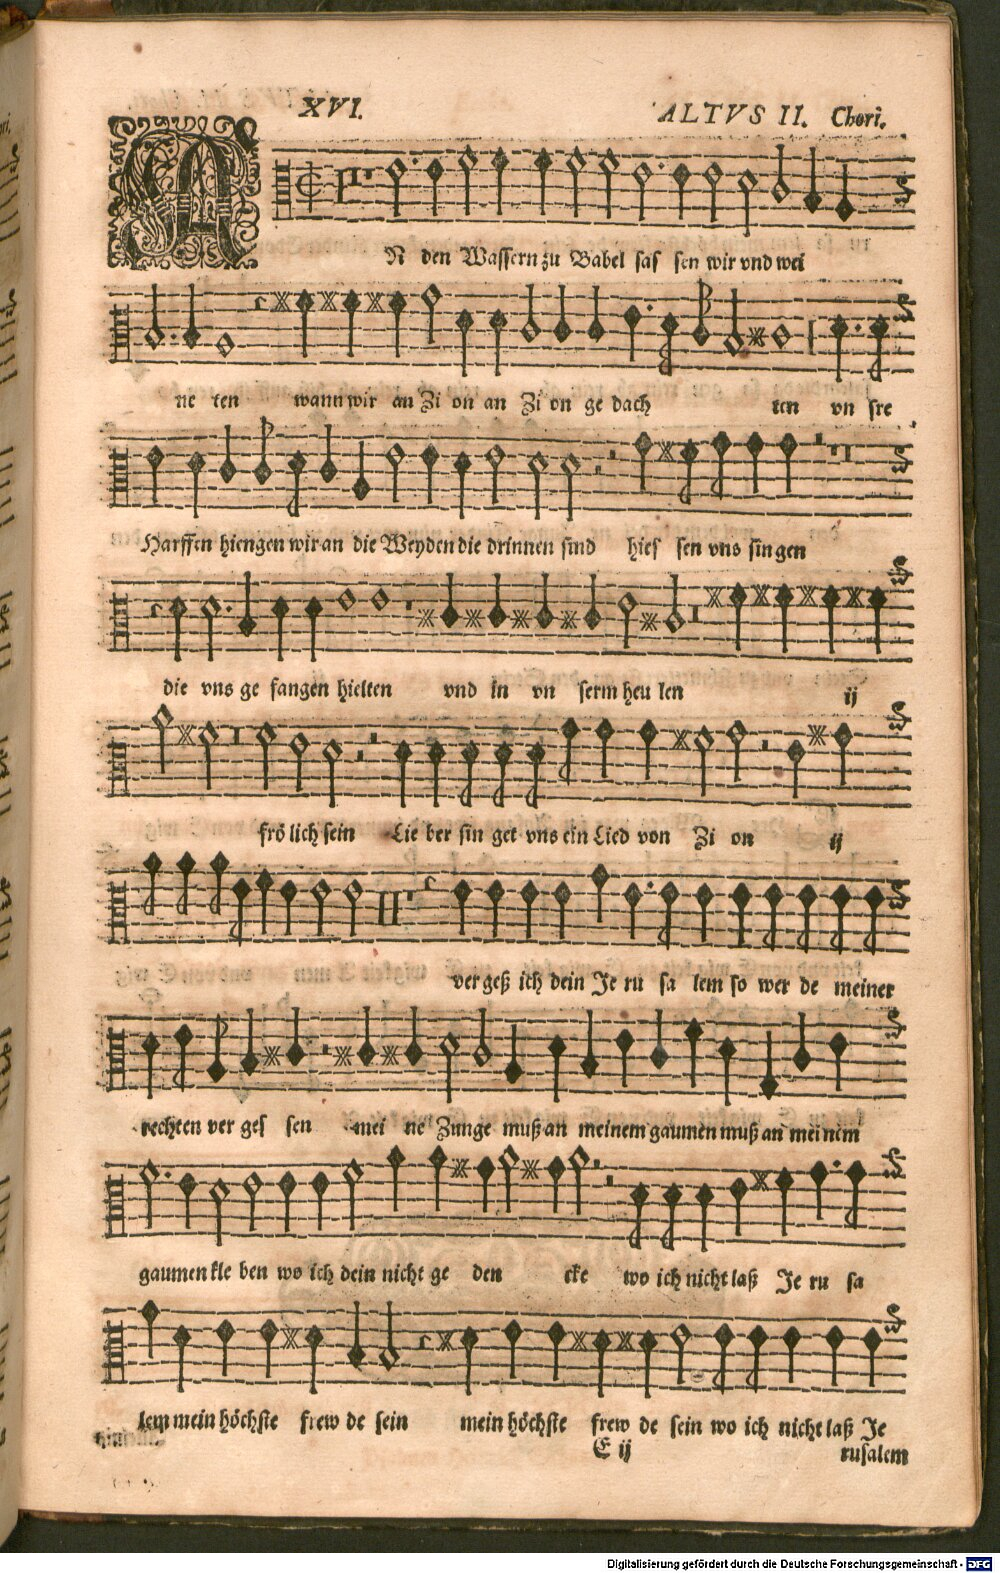 XVI. ALTVS II. Chori.
AN den Wassern zu Babel sas sen wir vnd wei
ne ten wann wir an Zi on an Zi on ge dach ten vn sre
Harffen hiengen wir an die Weyden die drinnen sind hies sen vns singen
die vns ge fangen hielten vnd in vn serm heu len ij
frö lich sein Lie ber sin get vns ein Lied von Zi on ij
ver geß ich dein Je ru sa lem so wer de meiner
rechten ver ges sen mei ne Zunge muß an meinem gaumen muß an meinem
gaumen kle ben wo ich dein nicht ge den cke wo ich nicht laß Je ru sa
lem mein höchste frew de sein mein höchste frew de sein wo ich nicht laß Je
E ij rusalem
Digitalisierung gefördert durch die Deutsche Forschungsgemeinschaft - DFG